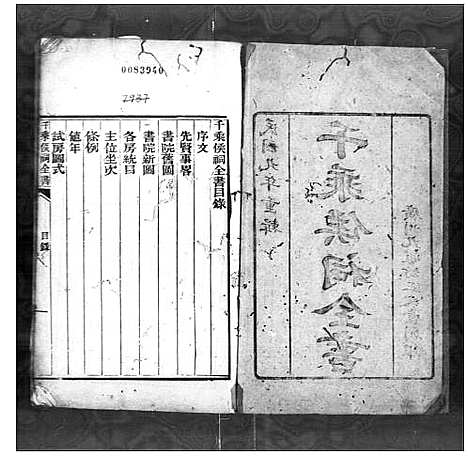 千乘侯祠全書
民國九年重輯
0083940
2937
千乘侯祠全書目錄
序文
先賢事畧
書院舊圖
書院新圖
各房統目
主位坐次
條例
值年
試房圖式
千乘侯祠全書 目錄